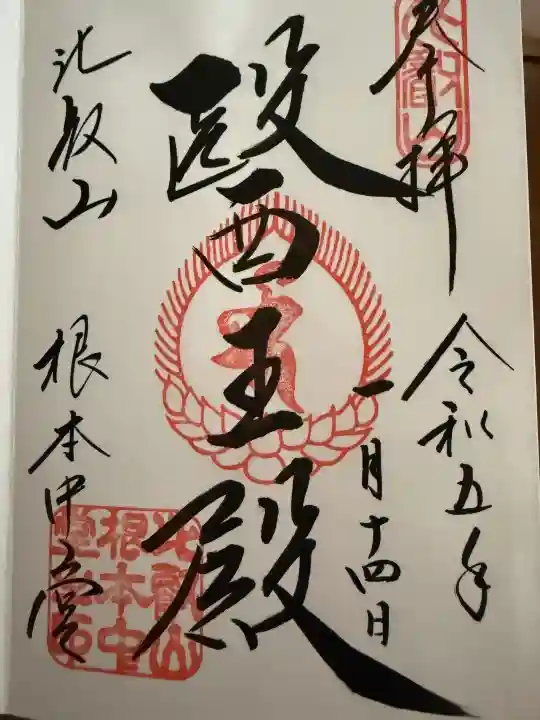 奉拝
令和五年
一月十四日
醫王殿
比叡山 根本中堂
比叡山